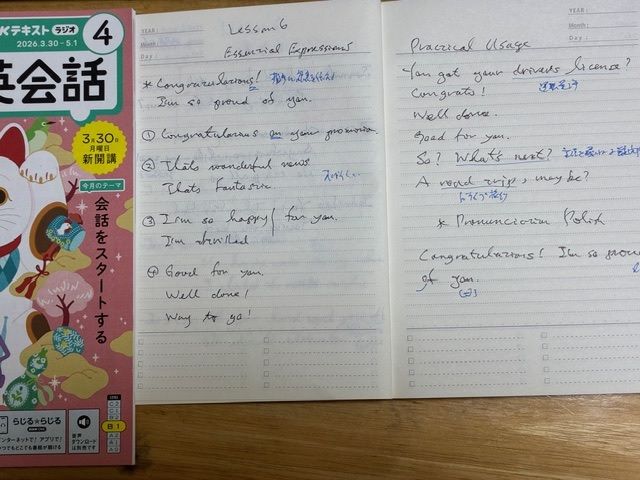 Kテキスト ラジオ
2026.3.30-5.1
4
英会話
3月30日
月曜日
新開講
今月のテーマ
会話をスタートする
らじる★らじる
インターネットで! アプリで!
いつでもどこでも番組が聴ける
音声
ダウンロード
は別売です
C2
C1
B2
B1
A2
A1
A0
YEAR:
Month:
Day:
Lesson 6
Essential Expressions
* Congratulations!
I'm so proud of you.
① Congratulations on your promotion.
② That's wonderful news
That's fantastic.
すばらしい
③ I'm so happy for you.
I'm thrilled
④ Good for you.
Well done!
Way to go!
YEAR:
Month:
Day:
Practical Usage
You got your driver's license?
運転免許
Congrats!
Well done.
Good for you.
So? What's next?
A road trip, maybe?
* Pronunciation Polish
Congratulations! I'm so proud
of you.